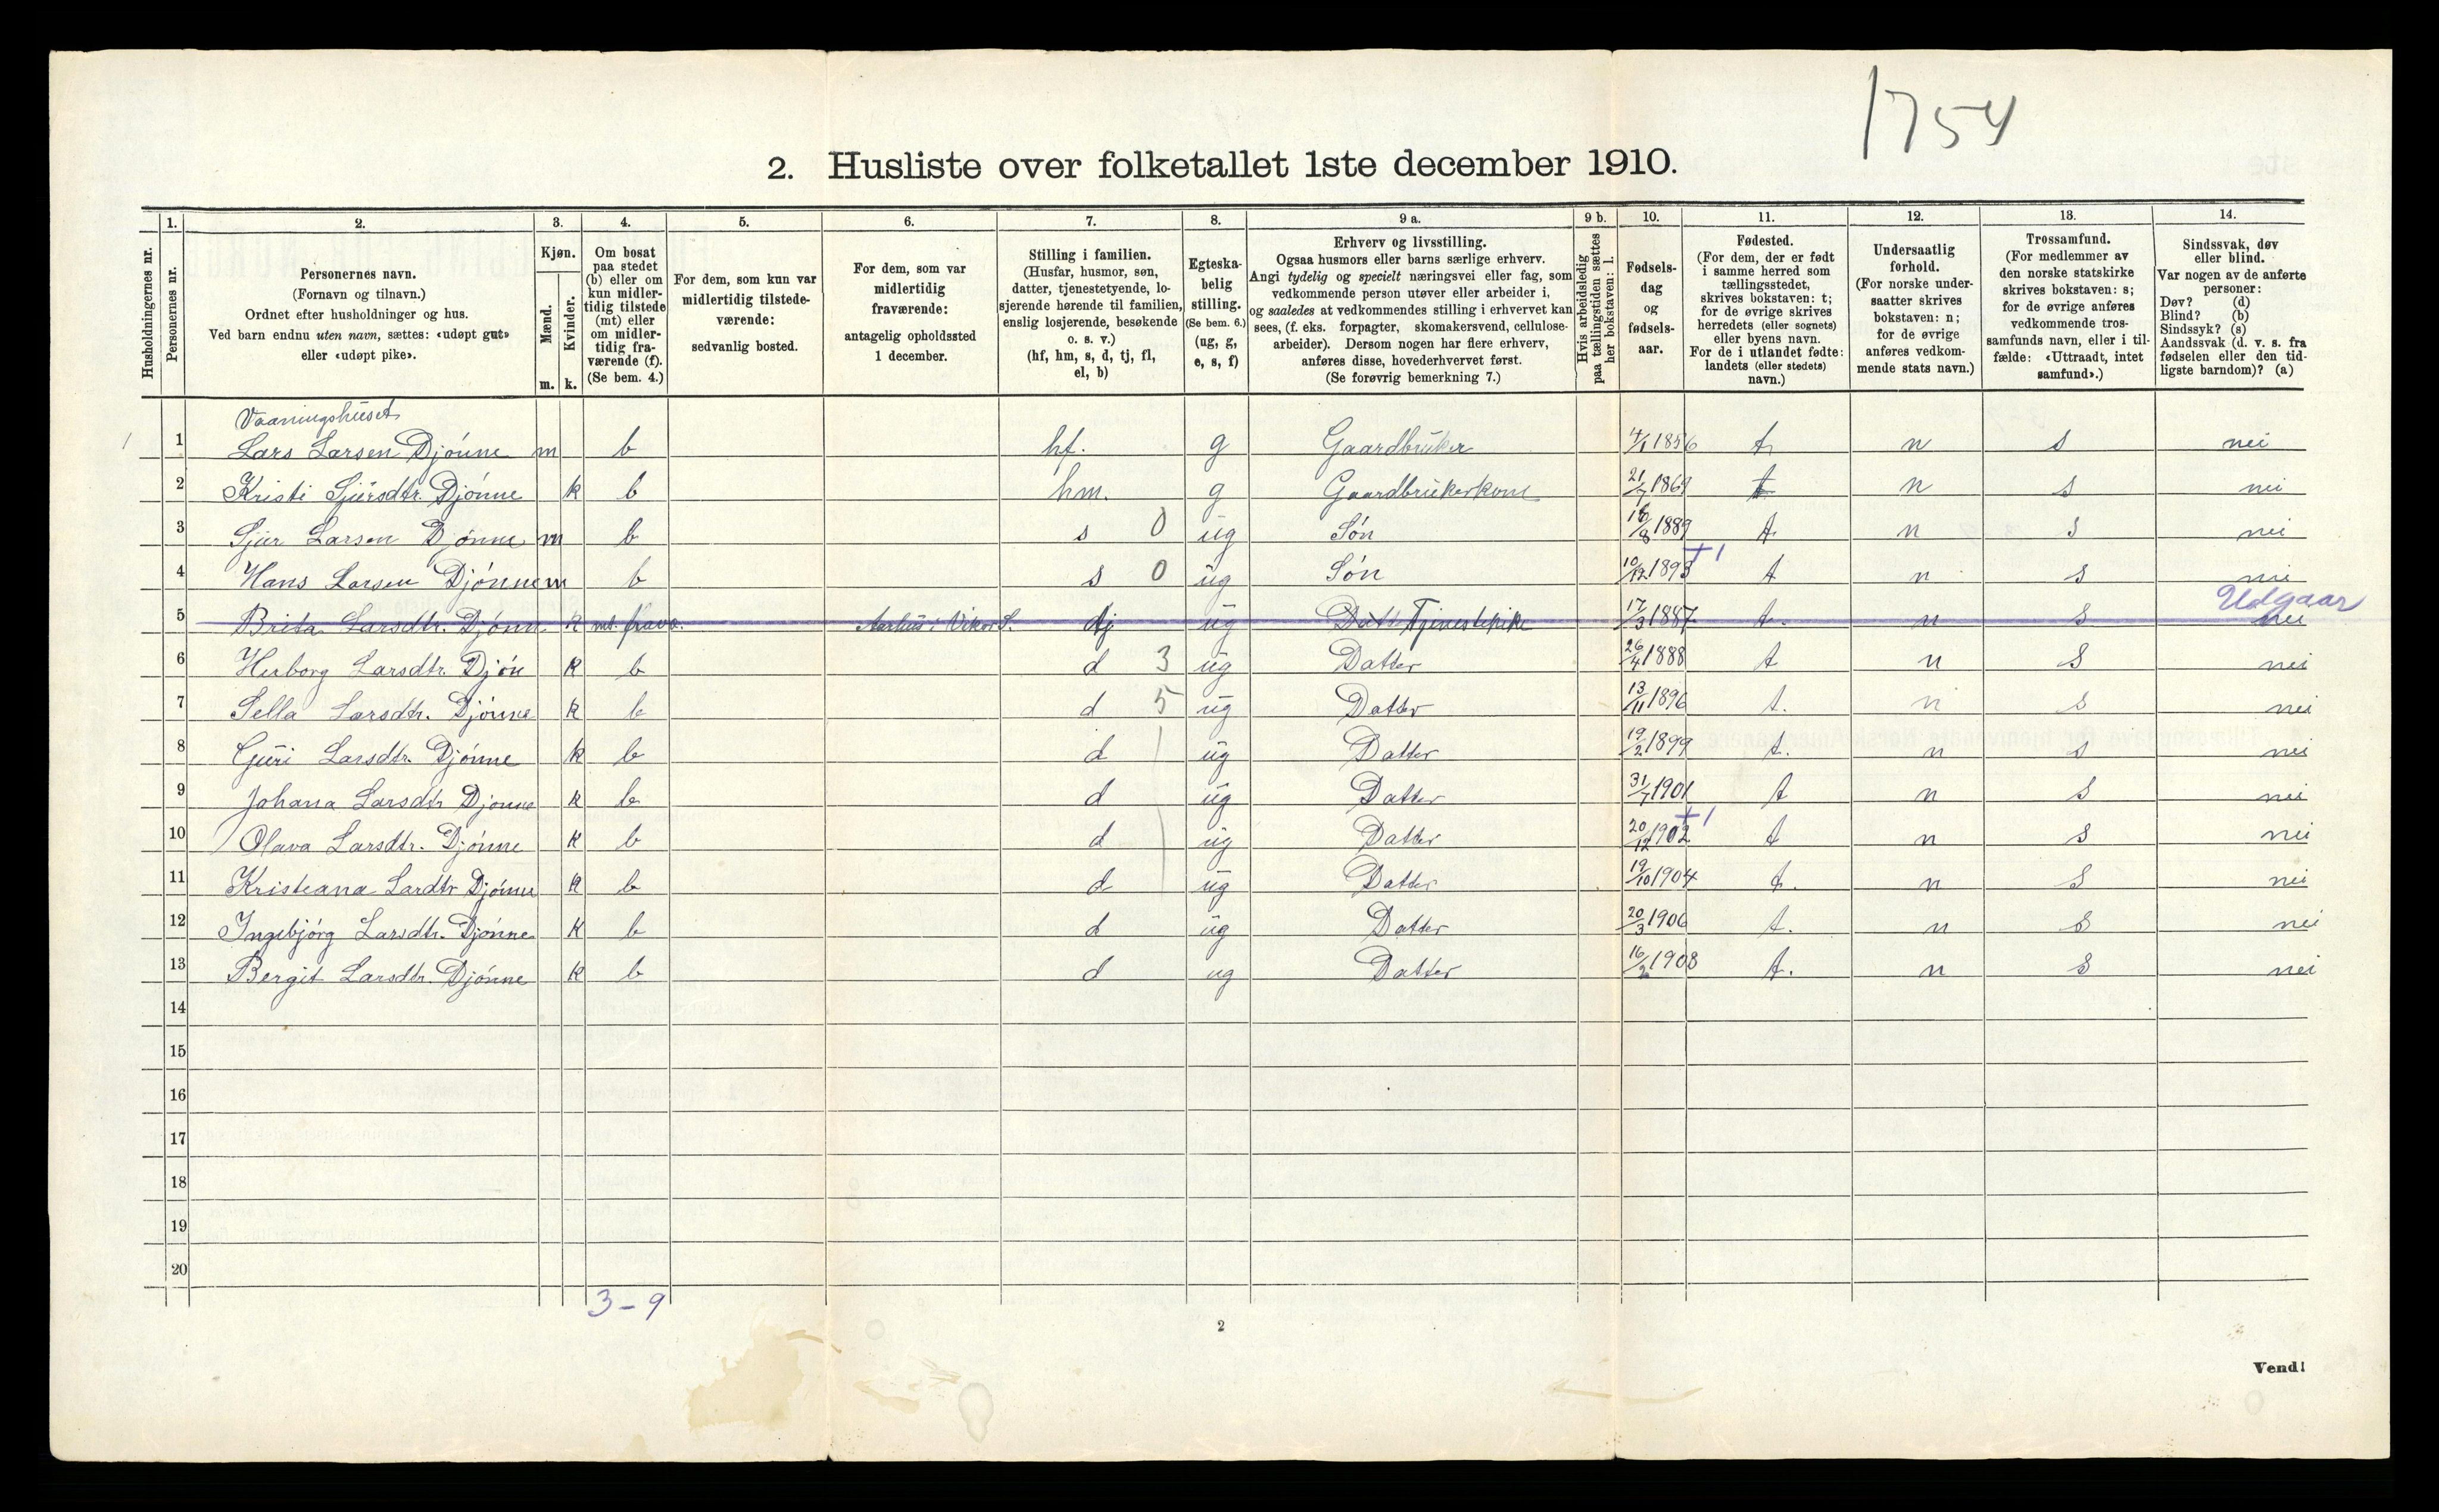 1754
2. Husliste over folketallet 1ste december 1910.
Husholdningernes nr.
1. Personernes nr.
2.
Personernes navn.
(Fornavn og tilnavn.)
Ordnet efter husholdninger og hus.
Ved barn endnu uten navn, sættes: «udøpt gut»
eller «udøpt pike».
3.
Kjøn.
Mænd. m.
Kvinder. k.
4.
Om bosat
paa stedet
(b) eller om
kun midler-
tidig tilstede
(mt) eller
om midler-
tidig fra-
værende (f).
(Se bem. 4.)
5.
For dem, som kun var
midlertidig tilstede-
værende:
sedvanlig bosted.
6.
For dem, som var
midlertidig
fraværende:
antagelig opholdssted
1 december.
7.
Stilling i familien.
(Husfar, husmor, søn,
datter, tjenestetyende, lo-
sjerende hørende til familien,
enslig losjerende, besøkende
o. s. v.)
(hf, hm, s, d, tj, fl,
el, b)
8.
Egteska-
belig
stilling.
(Se bem. 6.)
(ug, g,
e, s, f)
9 a.
Erhverv og livsstilling.
Ogsaa husmors eller barns særlige erhverv.
Angi tydelig og specielt næringsvei eller fag, som
vedkommende person utøver eller arbeider i,
og saaledes at vedkommendes stilling i erhvervet kan
sees, (f. eks. forpagter, skomakersvend, cellulose-
arbeider). Dersom nogen har flere erhverv,
anføres disse, hovederhvervet først.
(Se forøvrig bemerkning 7.)
9 b.
Hvis arbeidsledig
paa tællingstiden sættes
her bokstaven: l.
10.
Fødsels-
dag
og
fødsels-
aar.
11.
Fødested.
(For dem, der er født
i samme herred som
tællingsstedet,
skrives bokstaven: t;
for de øvrige skrives
herredets (eller sognets)
eller byens navn.
For de i utlandet fødte:
landets (eller stedets)
navn.)
12.
Undersaatlig
forhold.
(For norske under-
saatter skrives
bokstaven: n;
for de øvrige
anføres vedkom-
mende stats navn.)
13.
Trossamfund.
(For medlemmer av
den norske statskirke
skrives bokstaven: s;
for de øvrige anføres
vedkommende tros-
samfunds navn, eller i til-
fælde: «Uttraadt, intet
samfund».)
14.
Sindssvak, døv
eller blind.
Var nogen av de anførte
personer:
Døv? (d)
Blind? (b)
Sindssyk? (s)
Aandssvak (d. v. s. fra
fødselen eller den tid-
ligste barndom)? (a)
Vaaningshuset
1 1 Lars Larsen Djønne m b hf. g Gaardbruker 4/1 1856 t n s nei
2 Kristi Sjursdtr. Djønne k b hm. g Gaardbrukerkone 21/7 1869 t n s nei
3 Sjur Larsen Djønne m b s 0 ug Søn /8 1889 t n s nei
+1
4 Hans Larsen Djønne m b s 0 ug Søn 10/12 1893 t n s nei
Udgaar
5 Brita Larsdtr. Djønn k mt. frav. Aarhus i Vikør S. tj ug Tjenestepike 17/3 1887 t. n s nei
6 Herborg Larsdtr. Djøn k b d 3 ug Datter 26/4 1888 t n s nei
7 Sella Larsdtr. Djønne k b d 5 ug Datter 13/11 1896 t. n s nei
8 Guri Larsdtr. Djønne k b d ug Datter 19/2 1899 t. n s nei
9 Johana Larsdtr Djonne k b d ug Datter 31/7 1901 t n s nei
+1
10 Olava Larsdtr. Djønne k b d ug Datter 20/12 1902 t n s nei
11 Kristeana Lardtr Djønne k b d ug Datter 19/10 1904 t. n s nei
12 Ingebjørg Larsdtr. Djønne k b d ug Datter 20/3 1906 t. n s nei
13 Bergit Larsdtr. Djønne k b d ug Datter 16/2 1908 t. n s nei
14
15
16
17
18
19
20
3 - 9
2
Vend!